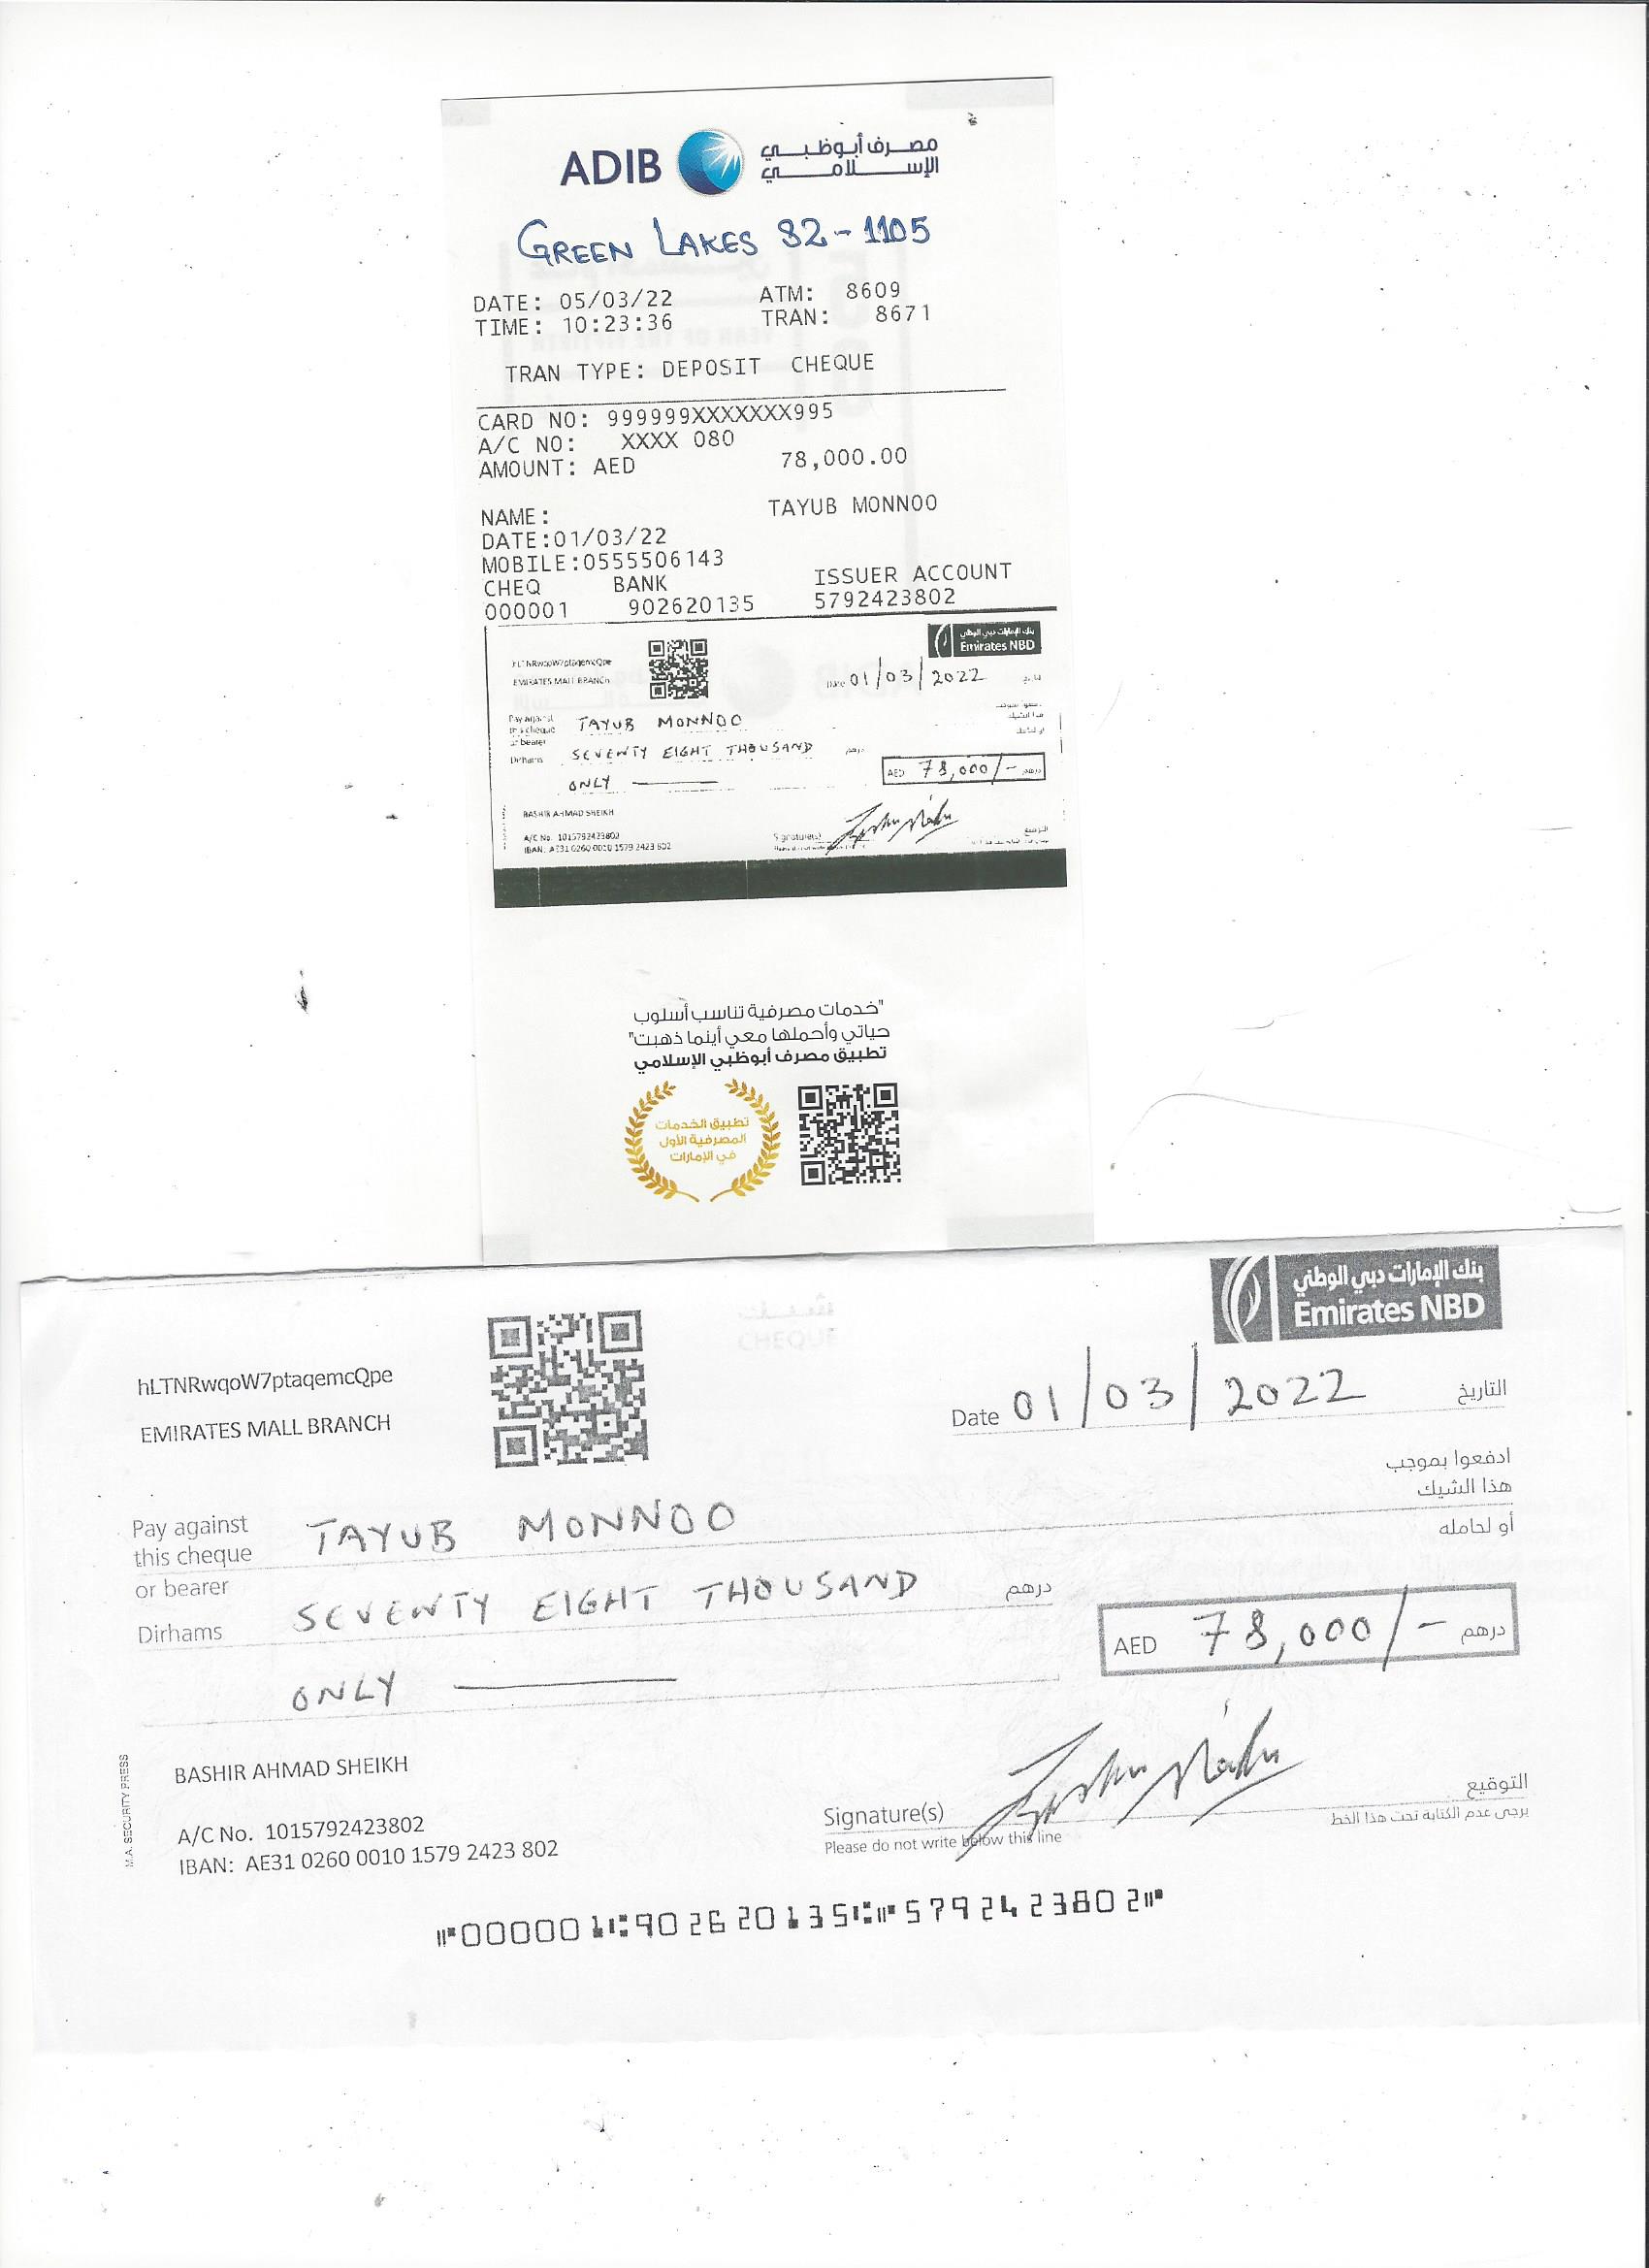 ADIB مصرف أبوظبي
الإسلامي
GREEN LAKES S2-1105
DATE: 05/03/22 ATM: 8609
TIME: 10:23:36 TRAN: 8671
TRAN TYPE: DEPOSIT CHEQUE
CARD NO: 999999XXXXXXX995
A/C NO: XXXX 080
AMOUNT: AED 78,000.00
NAME: TAYUB MONNOO
DATE:01/03/22
MOBILE:0555506143
CHEQ BANK ISSUER ACCOUNT
000001 902620135 5792423802
بنك الإمارات دبي الوطني
Emirates NBD
hLTNRwqoW7ptaqemcQpe
EMIRATES MALL BRANCH
Date 01/03/2022 التاريخ
Pay against
this cheque
or bearer
TAYUB MONNOO
هذا الشيك
أو لحامله
Dirhams SEVENTY EIGHT THOUSAND درهم
ONLY
AED 78,000/- درهم
BASHIR AHMAD SHEIKH
A/C No. 1015792423802
IBAN: AE31 0260 0010 1579 2423 802
Signature(s) التوقيع
"خدمات مصرفية تناسب أسلوب
حياتي وأحملها معي أينما ذهبت"
تطبيق مصرف أبوظبي الإسلامي
تطبيق الخدمات
المصرفية الأول
في الإمارات
بنك الإمارات دبي الوطني
Emirates NBD
CHEQUE
hLTNRwqoW7ptaqemcQpe
EMIRATES MALL BRANCH
Date 01/03/2022 التاريخ
ادفعوا بموجب
هذا الشيك
أو لحامله
Pay against
this cheque
or bearer
TAYUB MONNOO
Dirhams SEVENTY EIGHT THOUSAND درهم
ONLY
AED 78,000/- درهم
BASHIR AHMAD SHEIKH
A/C No. 1015792423802
IBAN: AE31 0260 0010 1579 2423 802
M.A. SECURITY PRESS
Signature(s) التوقيع
Please do not write below this line يرجى عدم الكتابة تحت هذا الخط
⑈000001⑆902620135⑆⑈5792423802⑈